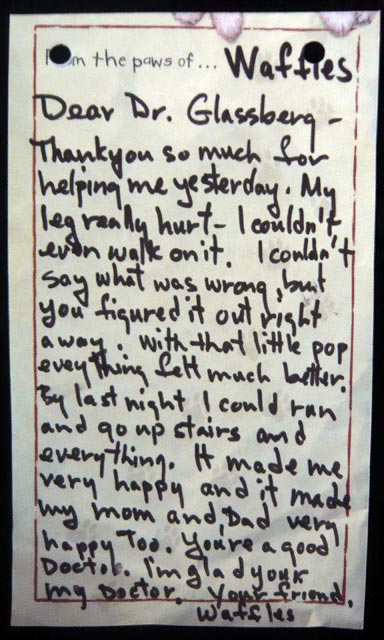 From the paws of... Waffles
Dear Dr. Glassberg -
Thankyou so much for
helping me yesterday. My
leg really hurt - I couldn't
even walk on it. I couldn't
say what was wrong, but
you figured it out right
away. With that little pop
eveything felt much better.
By last night I could run
and go up stairs and
everything. It made me
very happy and it made
my mom and Dad very
happy Too. You're a good
Doctor. I'm glad your
my Doctor. Your friend,
Waffles